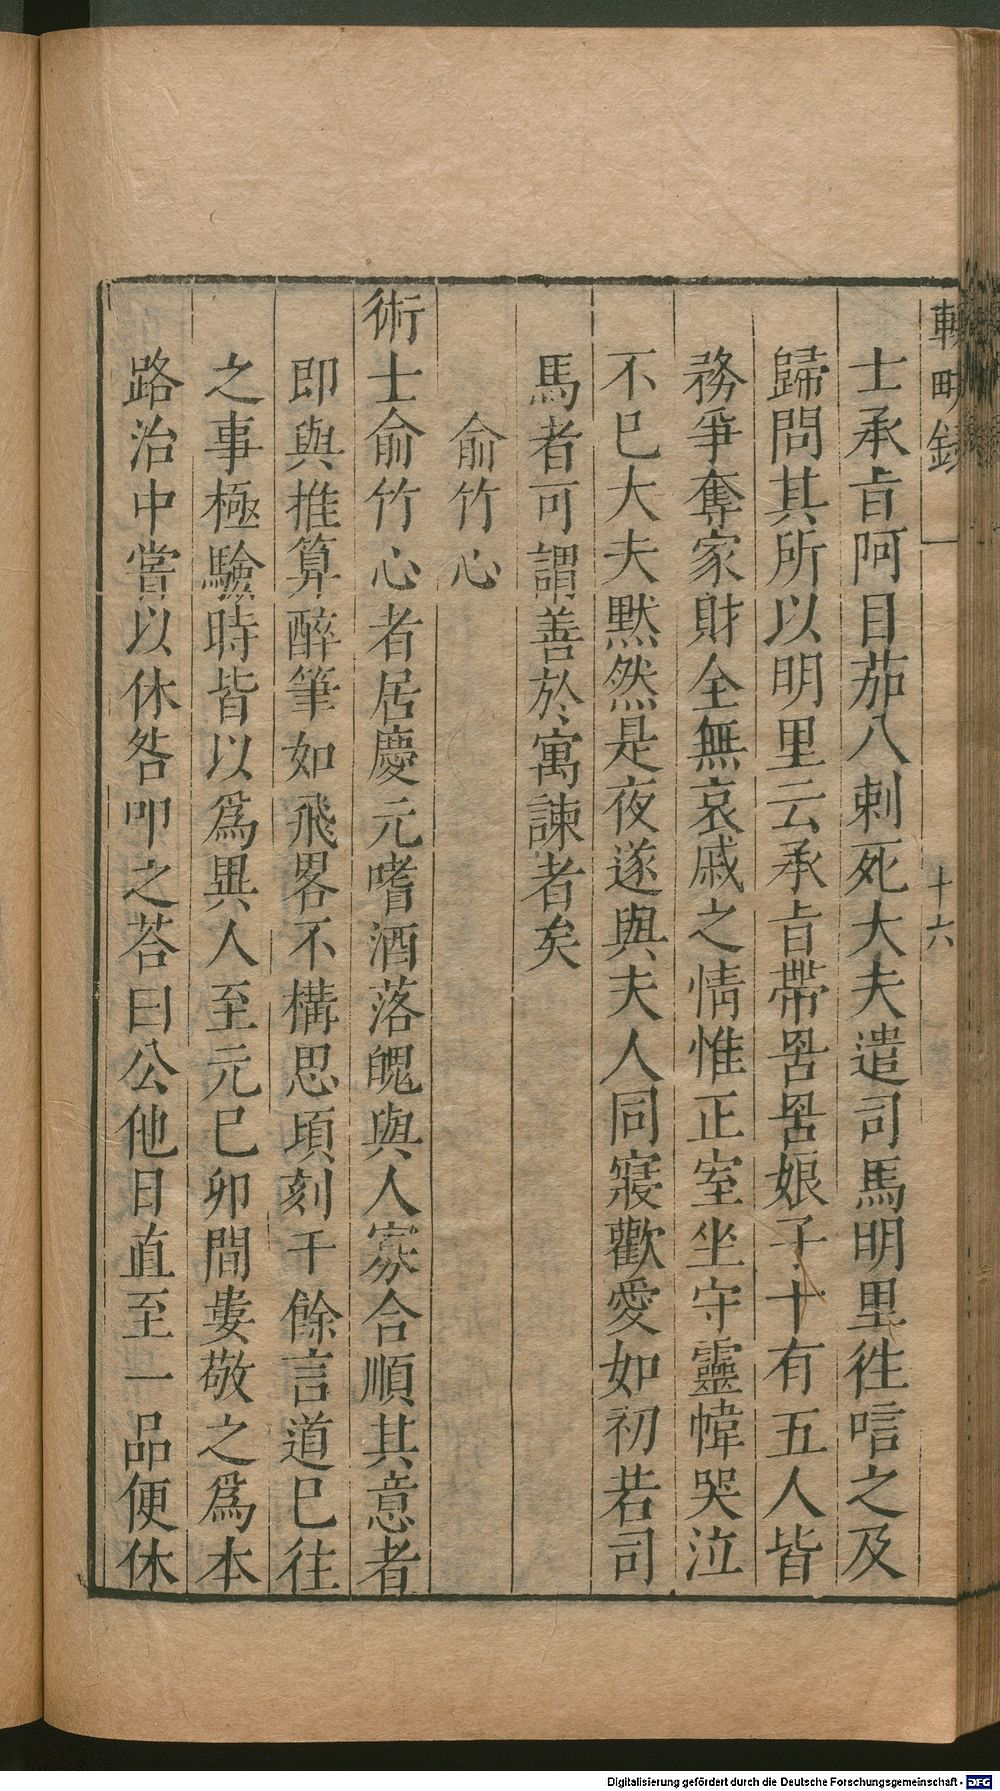 輟畊錄
十六
士承旨阿目茄八剌死大夫遣司馬明里徃唁之及
歸問其所以明里云承旨帶罟罟娘子十有五人皆
務爭奪家財全無哀戚之情惟正室坐守靈幃哭泣
不巳大夫默然是夜遂與夫人同寢歡愛如初若司
馬者可謂善於寓諫者矣
俞竹心
術士俞竹心者居慶元嗜酒落魄與人寡合順其意者
即與推算醉筆如飛畧不構思頃刻千餘言道巳往
之事極驗時皆以爲異人至元巳卯間婁敬之爲本
路治中嘗以休咎叩之荅曰公他日直至一品便休
Digitalisierung gefördert durch die Deutsche Forschungsgemeinschaft - DFG